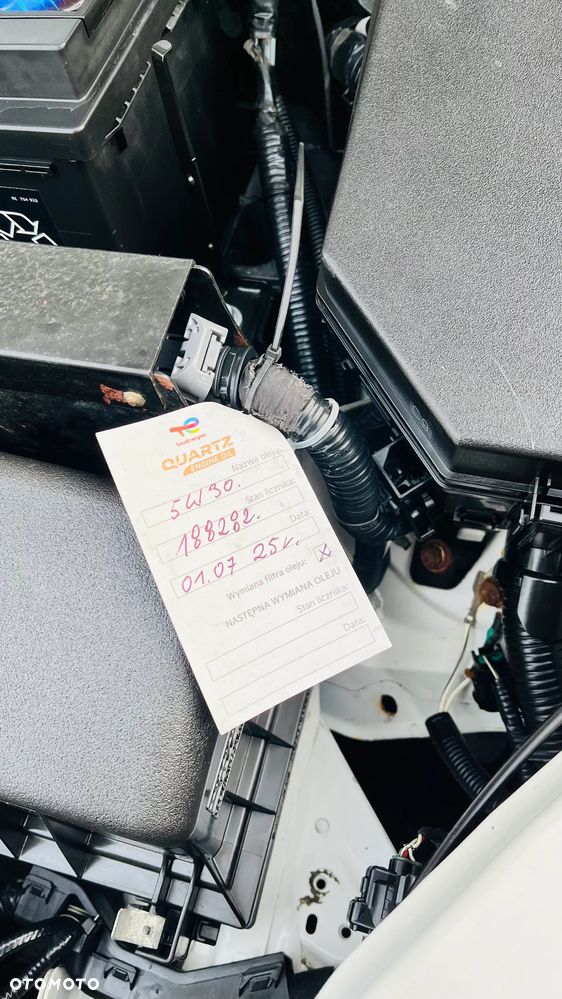 RE 704 928
TotalEnergies
QUARTZ
ENGINE OIL
Nazwa oleju:
5W30.
Stan licznika:
188282.
Data:
01.07 25r.
Wymiana filtra oleju: X
NASTĘPNA WYMIANA OLEJU
Stan licznika:
Data:
OTOMOTO